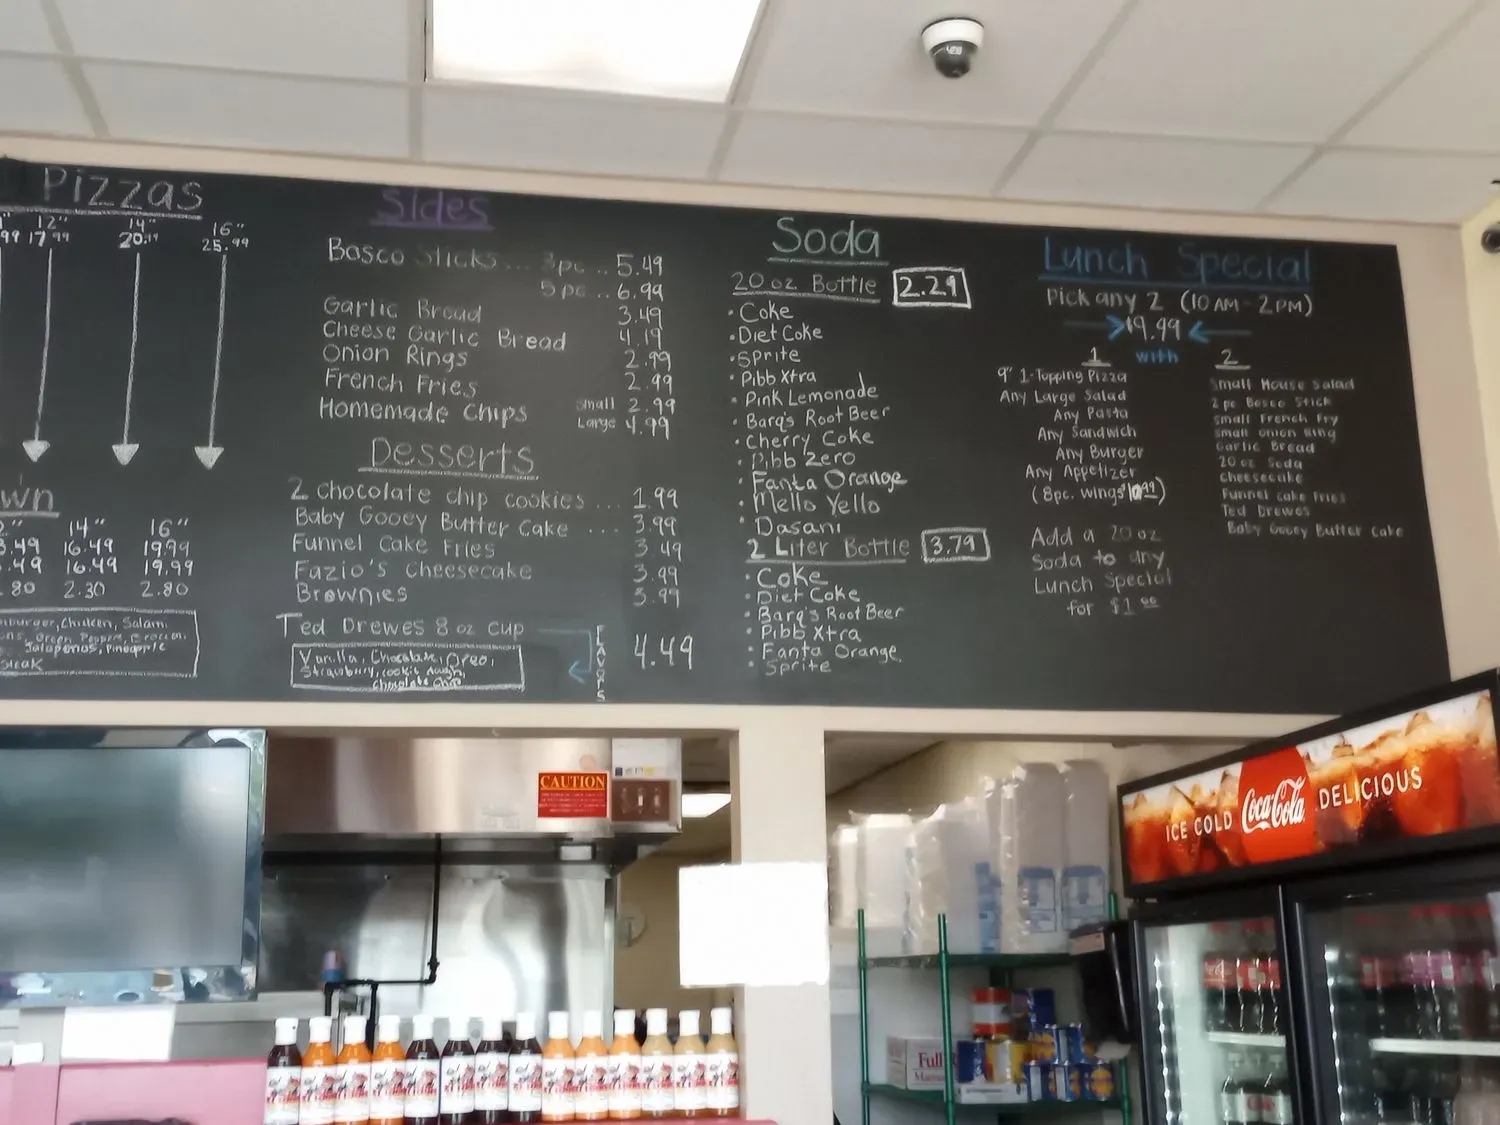 Pizzas
12" 14" 16"
17.99 20.19 25.99
wn
14" 16"
.49 16.49 19.99
.49 16.49 19.99
.80 2.30 2.80
Chicken, Salami
Green Peppers, Broccoli
Jalapenos, Pineapple
Steak
Sides
Bosco Sticks ... 3pc .. 5.49
5 pc .. 6.99
Garlic Bread 3.49
Cheese Garlic Bread 4.19
Onion Rings 2.99
French Fries 2.99
Homemade Chips Small 2.99
Large 4.99
Desserts
2 chocolate chip cookies ... 1.99
Baby Gooey Butter Cake ... 3.99
Funnel Cake Fries 3.49
Fazio's Cheesecake 3.99
Brownies 3.99
Ted Drewes 8 oz cup 4.49
FLAVORS
Vanilla, Chocolate, Oreo,
Strawberry, cookie dough,
chocolate chip
Soda
20 oz Bottle 2.29
• Coke
• Diet Coke
• Sprite
• Pibb Xtra
• Pink Lemonade
• Barq's Root Beer
• Cherry Coke
• Pibb Zero
• Fanta Orange
• Mello Yello
• Dasani
2 Liter Bottle 3.79
• Coke
• Diet Coke
• Barq's Root Beer
• Pibb Xtra
• Fanta Orange
• Sprite
Lunch Special
Pick any 2 (10 AM - 2 PM)
$9.99
1 with 2
9" 1-Topping Pizza
Any Large Salad
Any Pasta
Any Sandwich
Any Burger
Any Appetizer
(8pc. wings 10.99)
Add a 20 oz
Soda to any
Lunch Special
for $1.00
Small House Salad
2 pc Bosco Stick
Small French Fry
Small Onion Ring
Garlic Bread
20 oz Soda
Cheesecake
Funnel Cake Fries
Ted Drewes
Baby Gooey Butter Cake
CAUTION
ICE COLD Coca-Cola DELICIOUS
Full